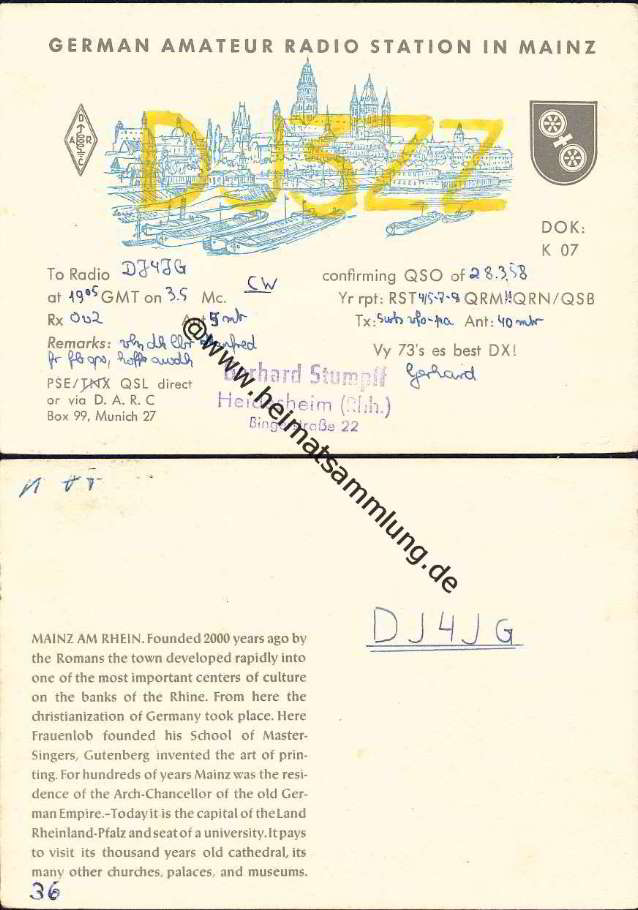 GERMAN AMATEUR RADIO STATION IN MAINZ
D
A R
C
DJ5ZZ
DOK:
K 07
To Radio DJ4JG
confirming QSO of 28.3.58
at 19⁰⁵ GMT on 3.5 Mc. CW
Yr rpt: RST 4/5-7-9 QRM!! QRN/QSB
Rx 0v2
Tx: Ant: 40 mtr
Remarks:
Vy 73's es best DX!
Gerhard
PSE/TNX QSL direct
or via D. A. R. C
Box 99, Munich 27
Gerhard Stumpff
Heidesheim (Rhh.)
Bingerstraße 22
@www.heimatsammlung.de
DJ4JG
MAINZ AM RHEIN. Founded 2000 years ago by
the Romans the town developed rapidly into
one of the most important centers of culture
on the banks of the Rhine. From here the
christianization of Germany took place. Here
Frauenlob founded his School of Master-
Singers, Gutenberg invented the art of prin-
ting. For hundreds of years Mainz was the resi-
dence of the Arch-Chancellor of the old Ger-
man Empire.-Today it is the capital of the Land
Rheinland-Pfalz and seat of a university. It pays
to visit its thousand years old cathedral, its
many other churches, palaces, and museums.
36